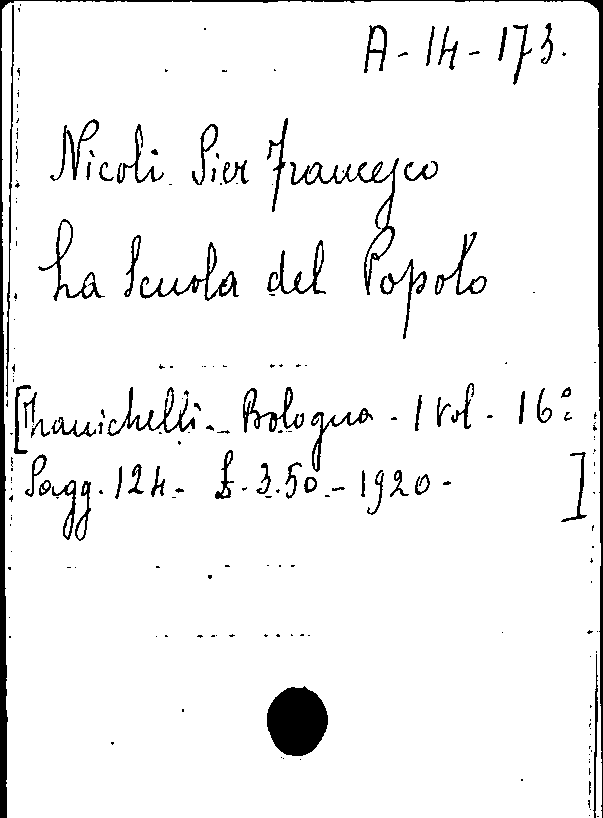 A-14-173.
Nicoli Pier Francesco
La Scuola del Popolo
[Zanichelli - Bologna - 1 vol - 16°:
Pagg. 124 - £. 3.50 - 1920 - ]